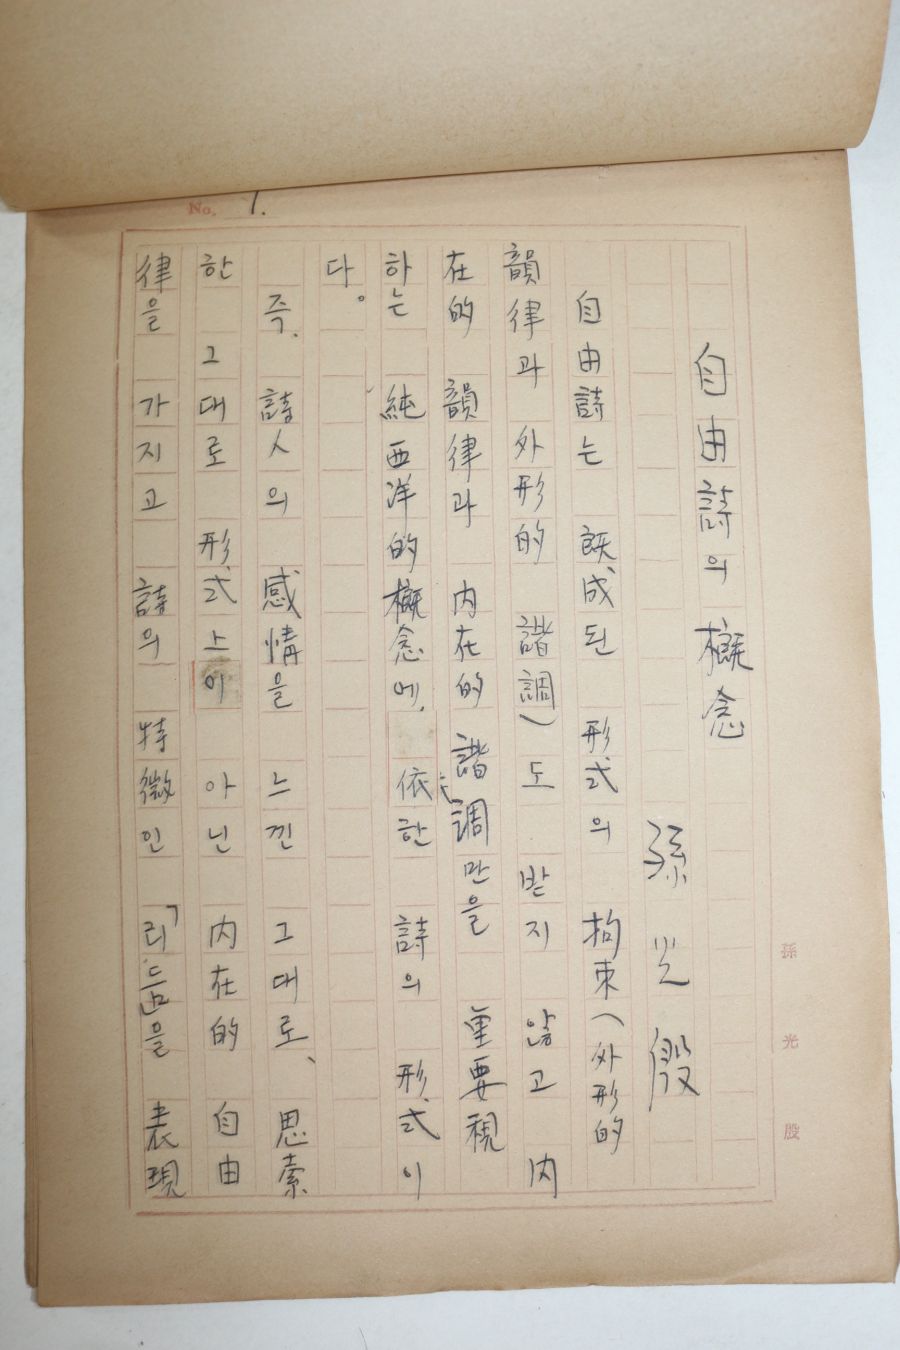 No. 1.
自由詩의 概念
孫光殷
自由詩는 旣成된 形式의 拘束(外形的
韻律과 外形的 諧調)도 받지 않고 内
在的 韻律과 内在的 諧調만을 重要視
하는 純西洋的 概念에, 依한 詩의 形式이
다。
즉. 詩人의 感情을 느낀 그대로、思索
한 그대로 形式上이 아닌 内在的 自由
律을 가지고 詩의 特徵인 「리듬」을 表現
孫光殷